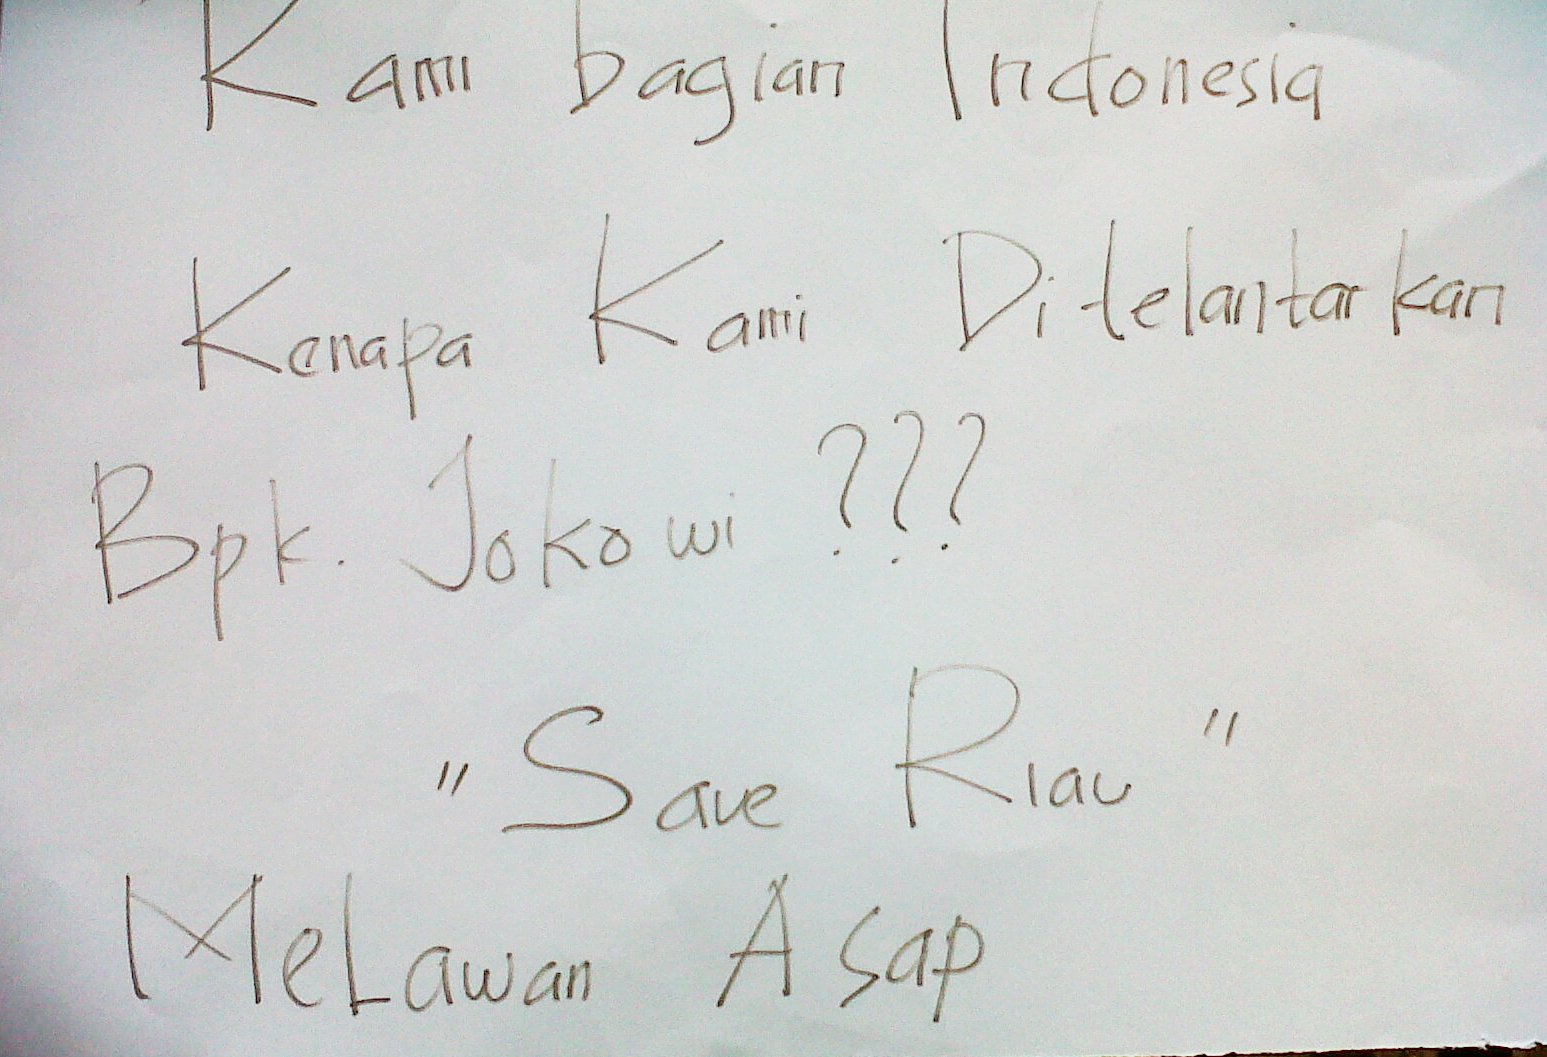 Kami bagian Indonesia
Kenapa Kami Ditelantarkan
Bpk. Jokowi ???
"Save Riau"
MeLawan Asap